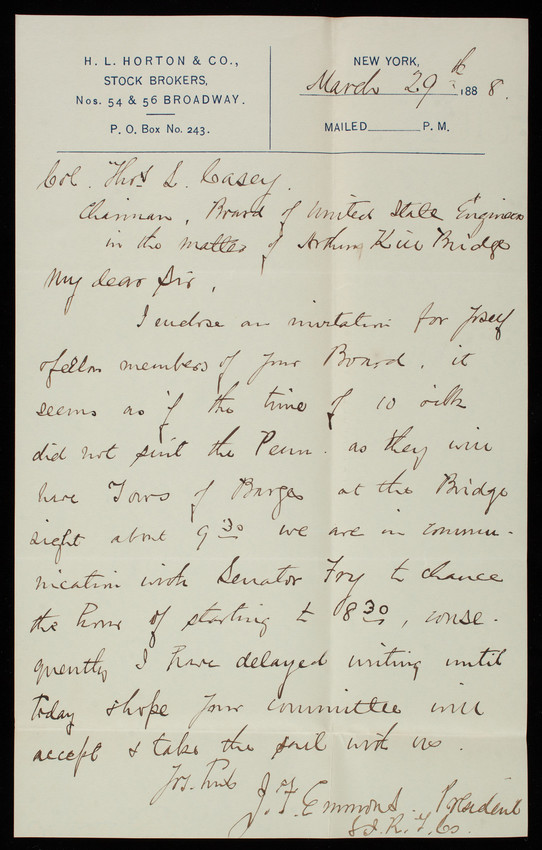 H. L. HORTON & CO.,
STOCK BROKERS,
Nos. 54 & 56 BROADWAY.
P. O. Box No. 243.
NEW YORK,
March 29th 1888.
MAILED P. M.
Col. Thos L. Casey.
Chairman, Board of United State Engineers
in the matter of Arthur Kill Bridge
My dear Sir,
I enclose an invitation for yourself
& fellow members of your Board. it
seems as if the time of 10 oclk
did not suit the Penn. as they will
have Tows of Barges at the Bridge
sight about 9 30 we are in commu-
nication with Senator Foy to chance
the hour of starting to 8 30, conse-
quently I have delayed writing until
today & hope your committee will
accept & take the sail with us.
J. F. Emmons. President
S. I. R. T. Co.